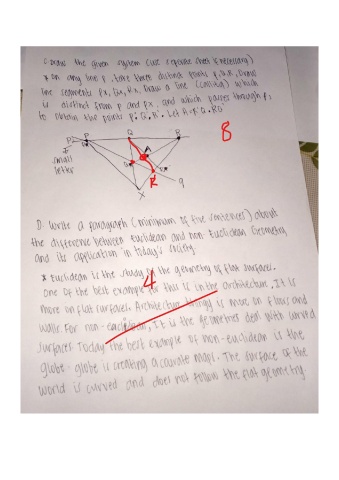 C. Draw the given system (use separate sheet if necessary)
* on any line p, take three distinct points P, Q, R. Draw
line segments PX, QX, RX. Draw a line (call it q) which
is distinct from p and PX, and which passes through P;
to obtain the points P'. Q'. R'. Let
8
P P Q R
small
letter
A
R
q
X
D. Write a paragraph (minimum of five sentences) about
the difference between Euclidean and non Euclidean Geometry
and its application in today's society.
* Euclidean is the study of the geometry of flat surfaces.
4
One of the best example for this is in the architecture, It is
more on flat surfaces. Architecture is more on floors and
walls. For non-euclidean, It is the geometries deal with curved
surfaces. Today the best example of non-euclidean is the
globe. globe is creating accurate maps. The surface of the
world is curved and does not follow the flat geometry